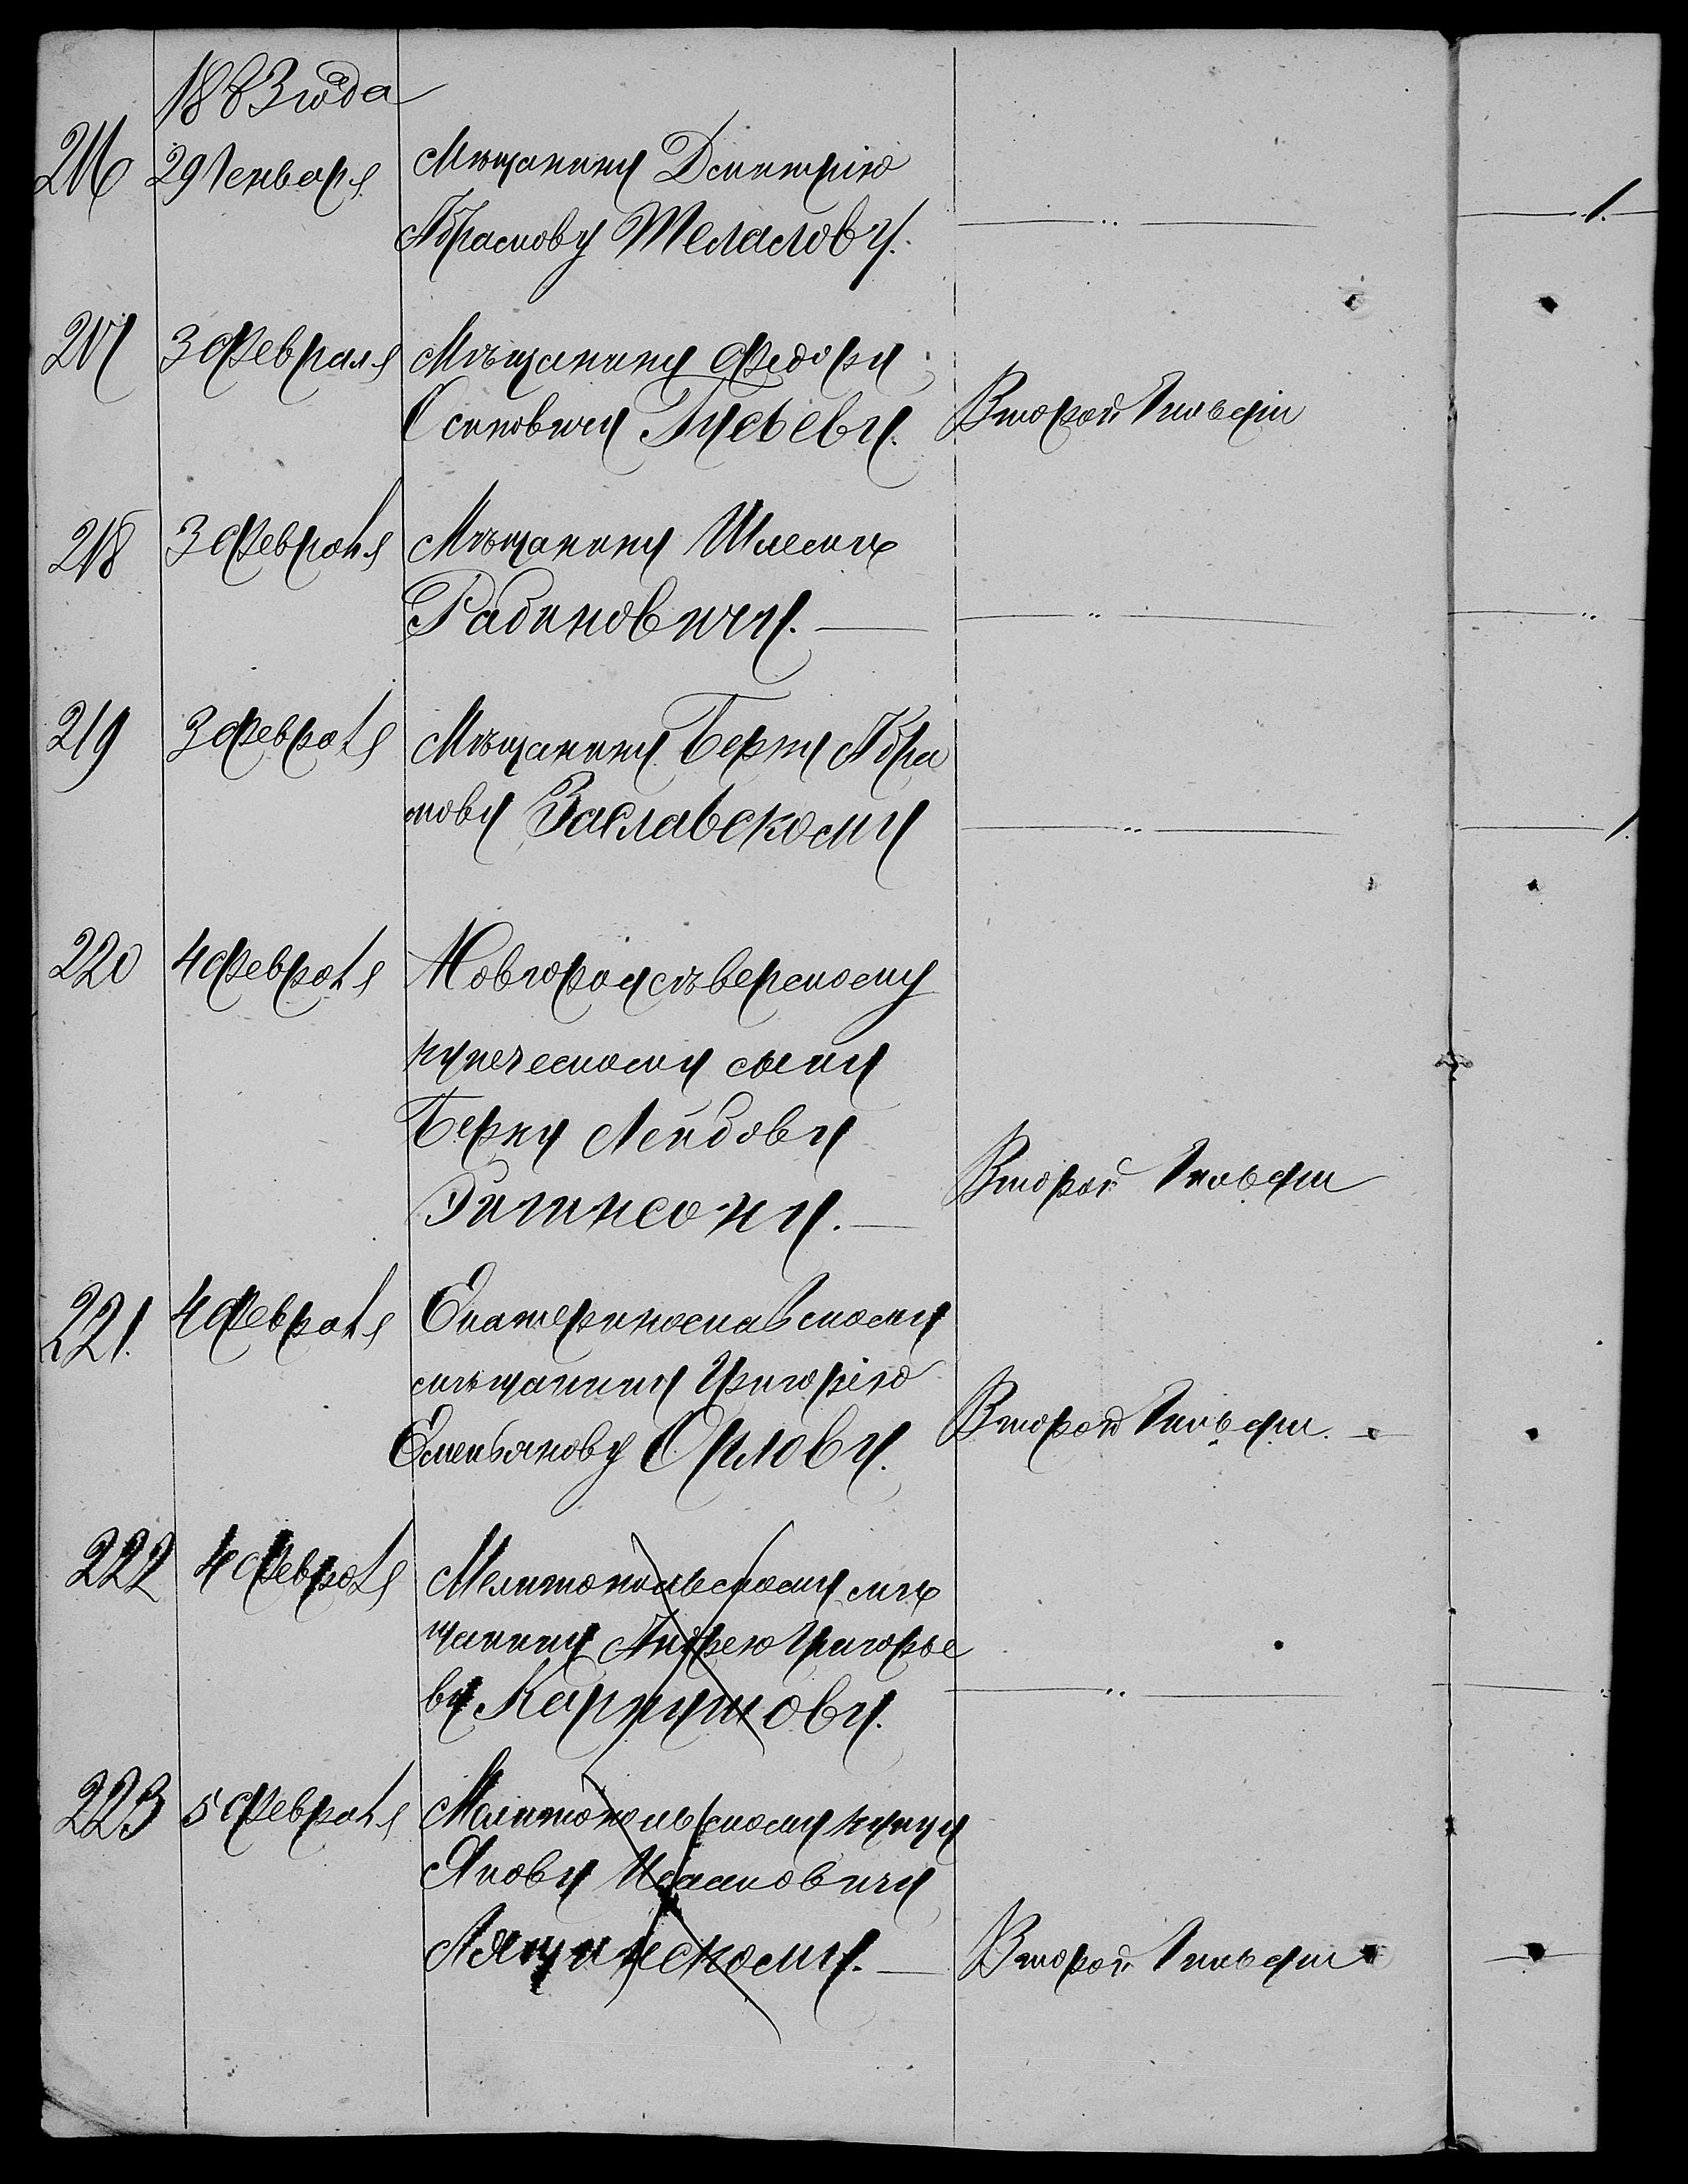 1883 года
216 29 Генваря Мѣщанину Дмитрію
Абрамову Желалову. — „ — 1.
217 3 Февраля Мѣщанину Федору
Осиповичу Гусеву. Второй Гильдіи
218 3 Февраля Мѣщанину Шлемѣ
Рабиновичу. — — „ — — „
219 3 Февраля Мѣщанину Берку Абра
мову Заславскому — „ — — 1.
220 4 Февраля Новгородсѣверскому
купеческому сыну
Берку Лейбову
Гитинсону. — Второй Гильдіи
221. 4 Февраля Екатеринославскому
мѣщанину Григорію
Емельянову Орлову. Второй Гильдіи. —
222 4 Февраля Мелитопольскому мѣ
щанину Андрею Григорье
ву — „ — — „
223 5 Февраля Мелитопольскому купцу
Якову Исааковичу
Лящинскому. — Второй Гильдіи